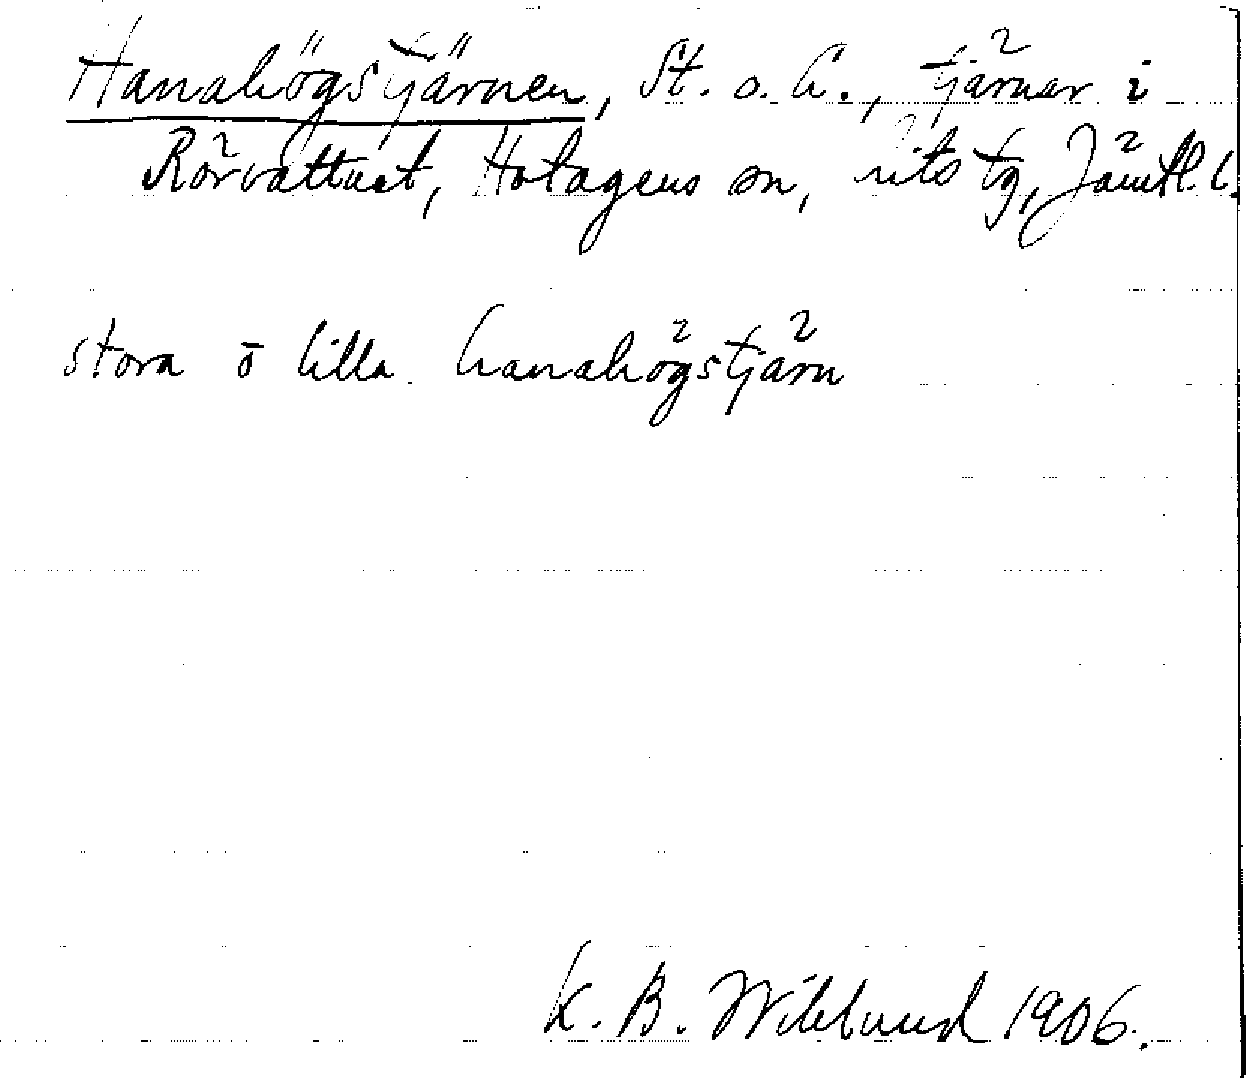 Hanahögstjärnen, St. o. L., tjärnar i
Rörvattnet, Hotagens sn, tg, Jämtl. l.
stora ō lilla hanahögstjärn
K. B. Wiklund 1906.